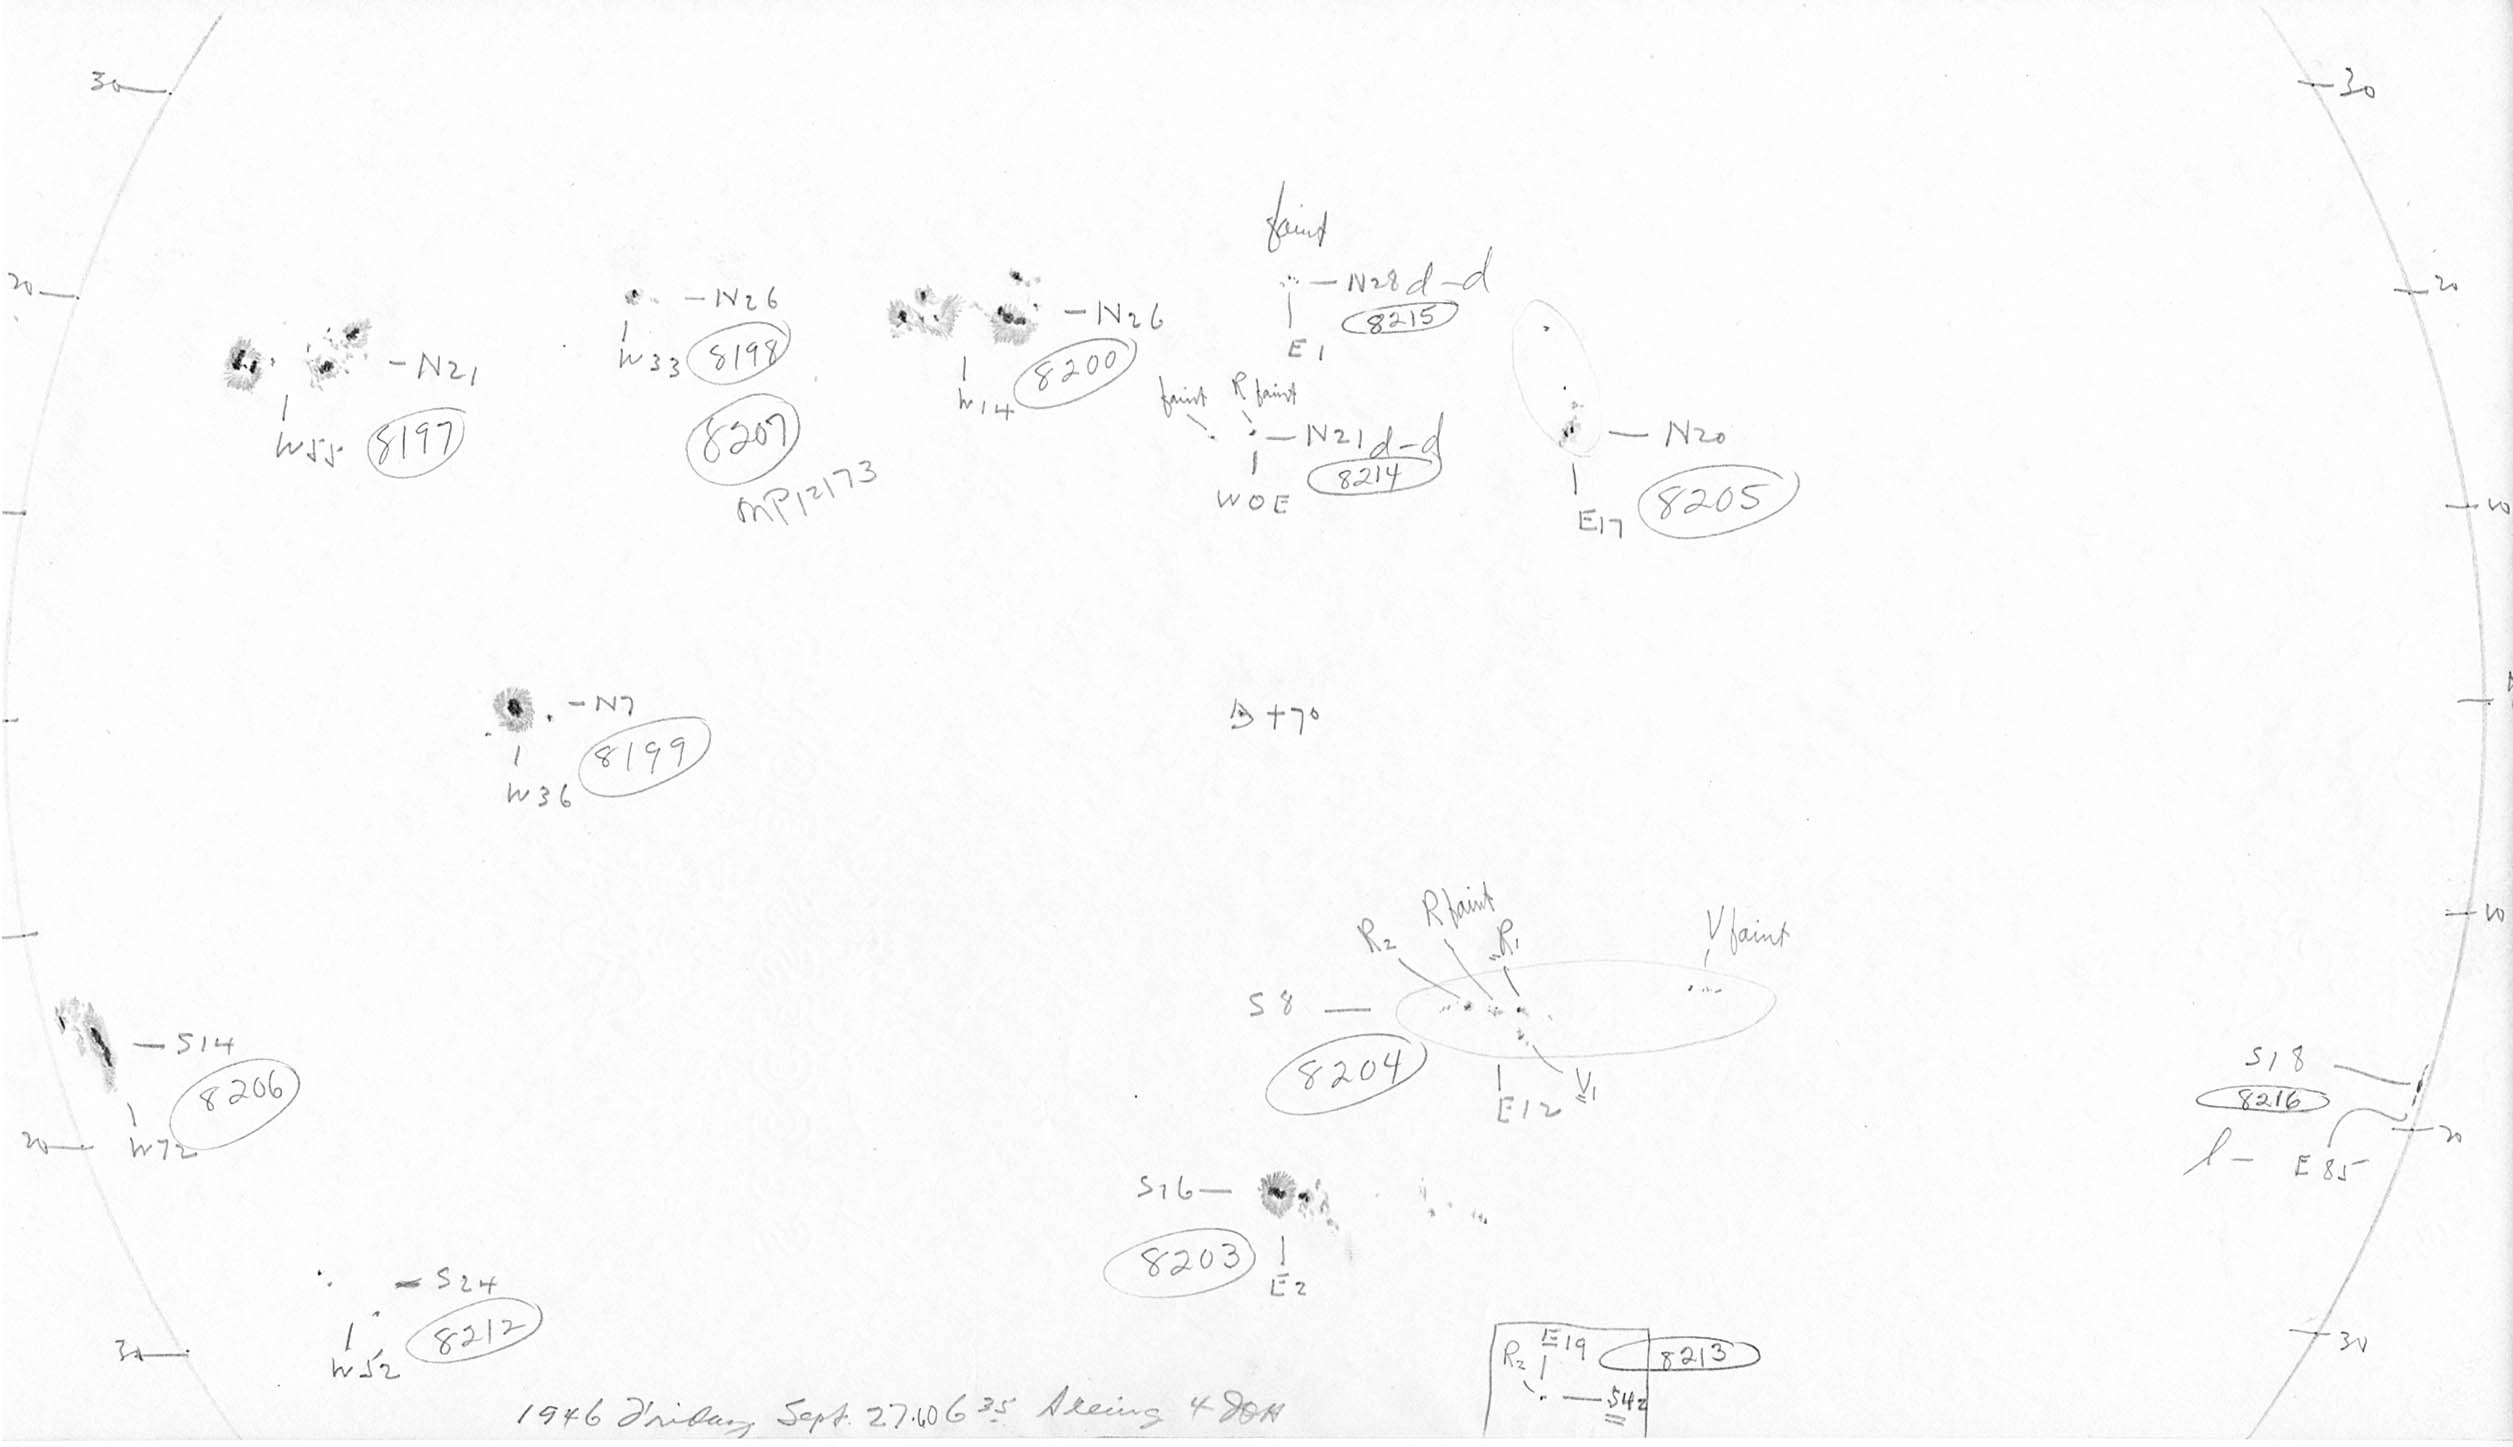 30
30
20
20
faint
-N28 d-d
8215
E1
-N26
W33
8198
-N26
W14
8200
-N21
W55
8197
8207
MP12173
faint
R faint
-N21 d-d
8214
W0E
-N20
E17
8205
10
-N7
W36
8199
+70
R2
R faint
R1
V faint
10
S8
8204
E12
V1
-S14
8206
W72
20
S18
8216
l-
E85
20
S16-
8203
E2
-S24
8212
W52
30
30
E19
8213
R2
S42
1946 Friday Sept. 27. 6 35 Seeing 4